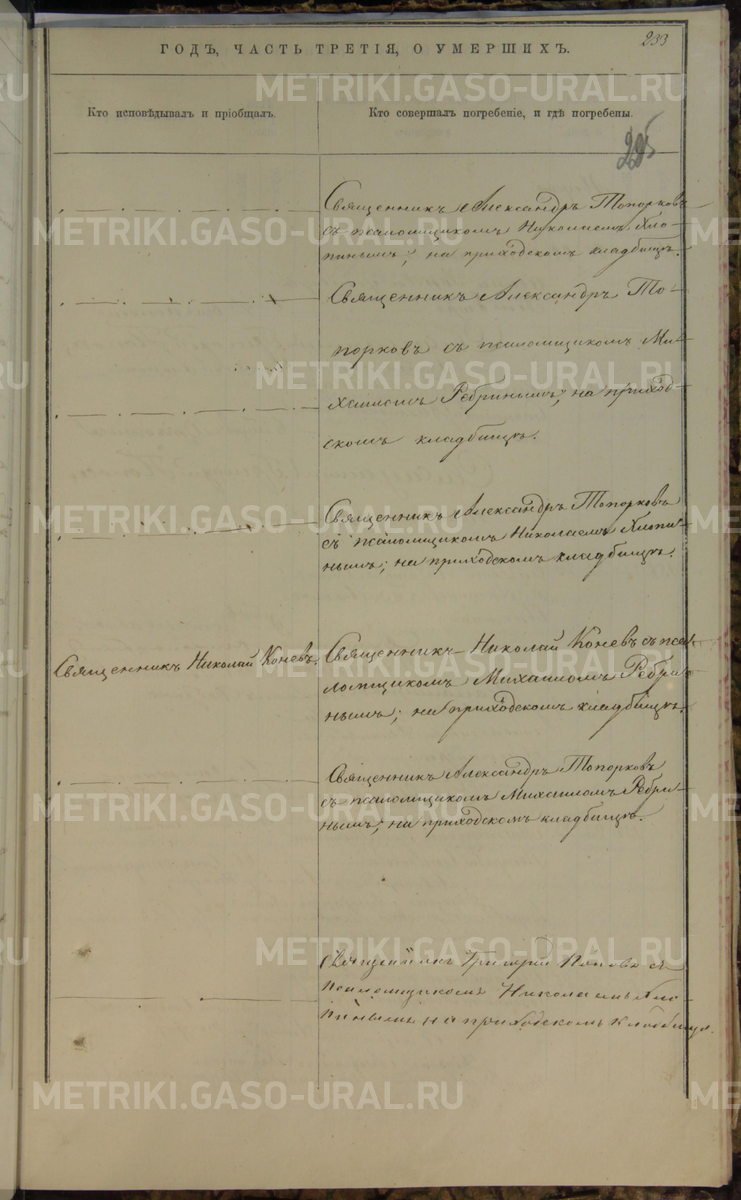 233
ГОДЪ, ЧАСТЬ ТРЕТІЯ, О УМЕРШИХЪ.
Кто исповѣдывалъ и пріобщалъ.
Кто совершалъ погребеніе, и гдѣ погребены.
Священникъ Александръ Топорковъ
съ псаломщикомъ Николаемъ Хло-
пинымъ; на приходскомъ кладбищѣ.
Священникъ Александръ То-
порковъ съ псаломщикомъ Ми-
хаиломъ Ребринымъ; на приход-
скомъ кладбищѣ.
Священникъ Александръ Топорковъ
съ псаломщикомъ Николаемъ Хлопи-
нымъ; на приходскомъ кладбищѣ.
Священникъ Николай Коневъ.
Священникъ Николай Коневъ съ пса-
ломщикомъ Михаиломъ Ребри-
нымъ; на приходскомъ кладбищѣ.
Священникъ Александръ Топорковъ
съ псаломщикомъ Михаиломъ Ребри-
нымъ; на приходскомъ кладбищѣ.
Священникъ Григорій Поповъ съ
псаломщикомъ Николаемъ Хло-
пинымъ на приходскомъ кладбищѣ.
METRIKI.GASO-URAL.RU